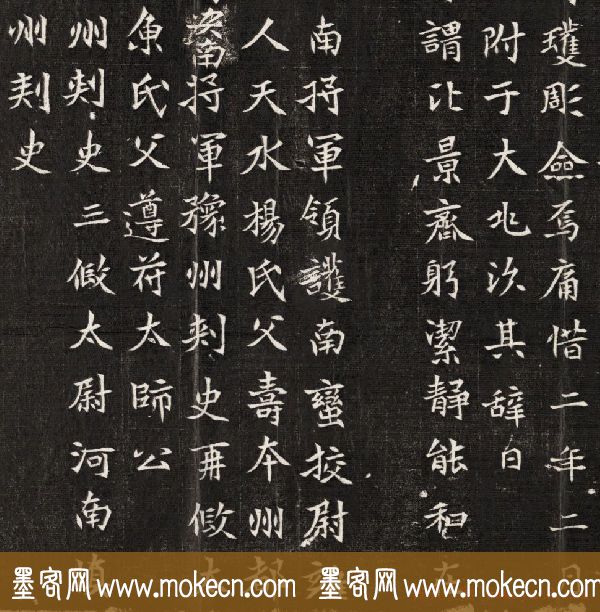 彫僉焉痛惜二年二
附于大兆次其辞曰
謂比景齊躬潔静能和
南将軍領護南蠻挍尉
人天水楊氏父壽本州
南将軍豫州刾史再假
魚氏父遵苻太師公
州刾史三假太尉河南
州刾史
墨客网 www.mokecn.com 墨客网 www.mokecn.com